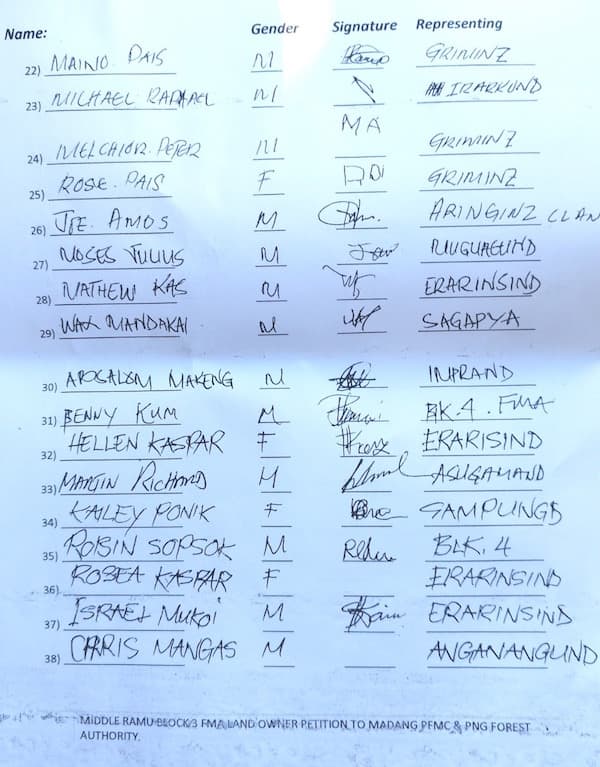 Name: Gender Signature Representing
22) MAINO PAIS M GRIMINZ
23) MICHAEL RAPHAEL M IRARKUND
24) MELCHIOR. PETER M MA GRIMINZ
25) ROSE. PAIS F GRIMINZ
26) JOE. AMOS M ARINGINZ CLAN
27) MOSES JULIUS M
28) MATHEW KAS M ERARINSIND
29) WAX MANDAKAI M SAGAPYA
30) APOSALOM MAKENG M
31) BENNY KUM M BK. 4. FMA
32) HELLEN KASPAR F ERARISIND
33) MARTIN RICHARD M ASUGAMAND
34) KALEY PONIK F SAMPUNGD
35) ROBIN SOPSOK M BLK. 4
36) ROBEA KASPAR F ERARINSIND
37) ISRAEL MUKOI M ERARINSIND
38) CHRIS MANGAS M ANGANANGUND
MIDDLE RAMU BLOCK 3 FMA LAND OWNER PETITION TO MADANG PFMC & PNG FOREST
AUTHORITY.